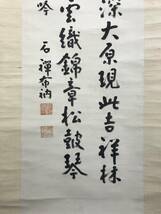 深大原現此吉祥林
雲織錦章松鼓琴
吟
石禅衲